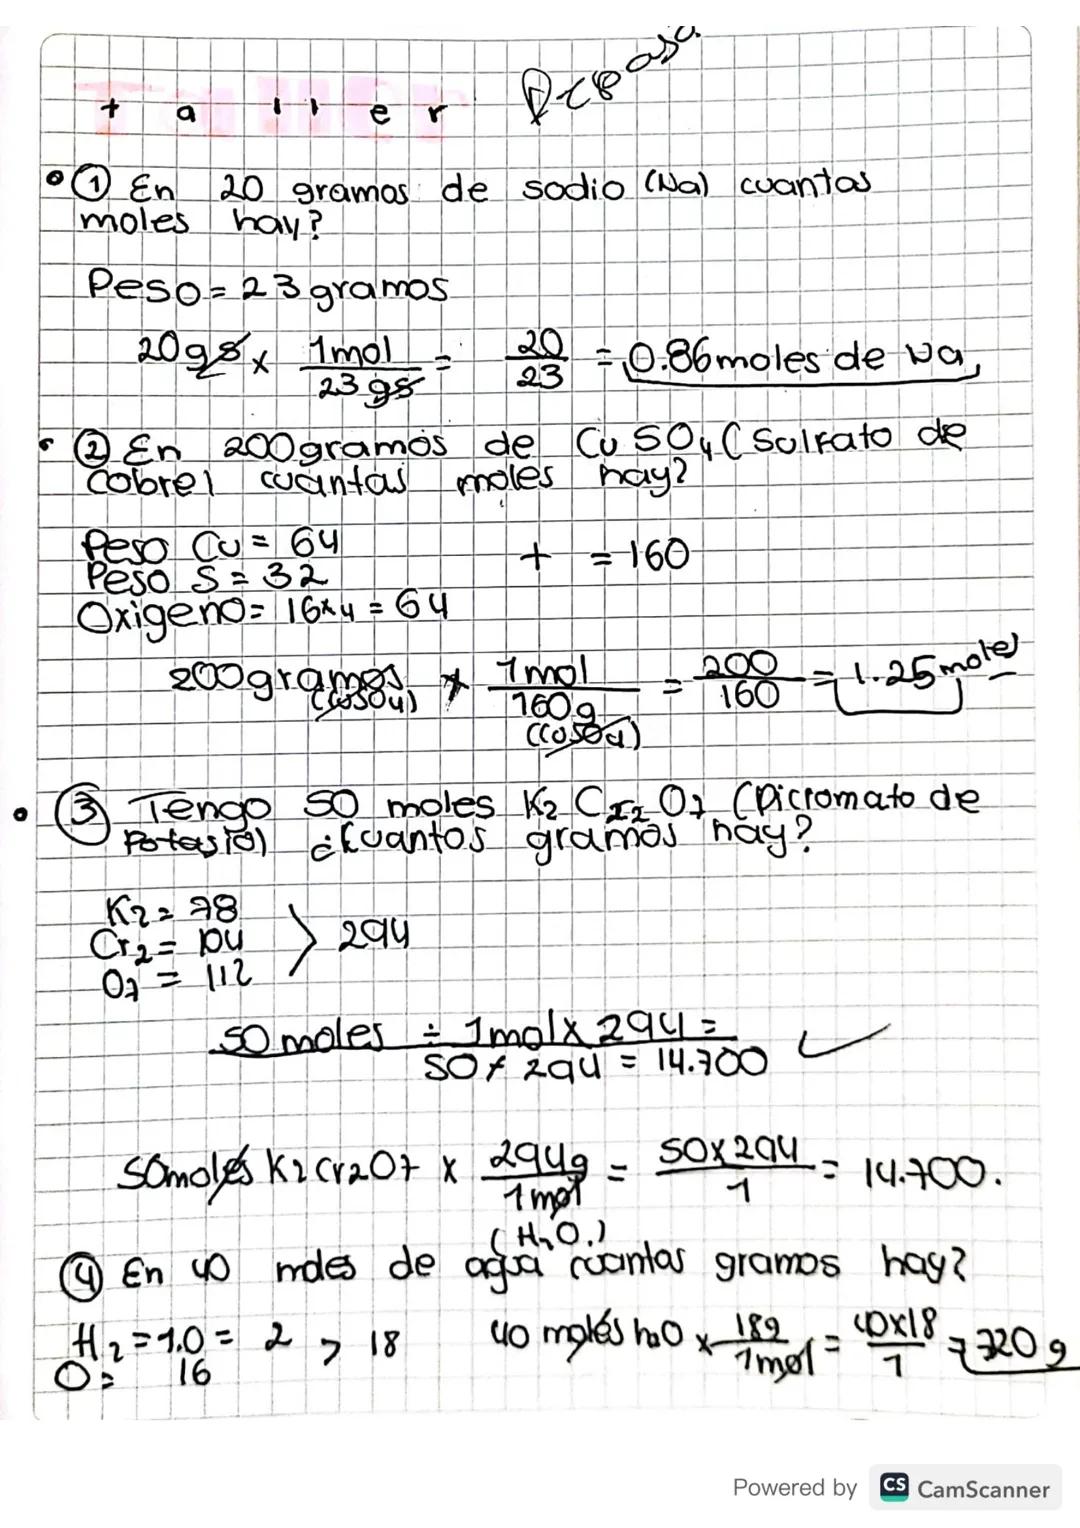 taller Repasa
① En 20 gramos de sodio (Na) cuantas
moles hay?
Peso = 23 gramos
20gs x 1mol / 23 gs = 20 / 23 = 0.86 moles de Na
② En 200 gramos de CuSO4 (Sulfato de
cobre) cuantas moles hay?
Peso Cu = 64
+ = 160
Peso S = 32
Oxigeno = 16x4 = 64
200 gramos (CuSO4) x 1 mol / 160 g (CuSO4) = 200 / 160 = 1.25 moles
③ Tengo 50 moles K2 Cr2 O7 (Dicromato de
Potasio) ¿Cuantos gramos hay?
K2 = 78
Cr2 = 104 > 294
O7 = 112
50 moles ÷ 1mol x 294 =
50 x 294 = 14.700 ✓
50 moles K2Cr2O7 x 294g / 1 mol = 50x294 / 1 = 14.700.
(H2O.)
④ En 40 moles de agua cuantas gramos hay?
H2 = 1.0 = 2 > 18
40 moles h2O x 18g / 1mol = 40x18 / 1 = 720 g
O = 16
Powered by CS CamScanner